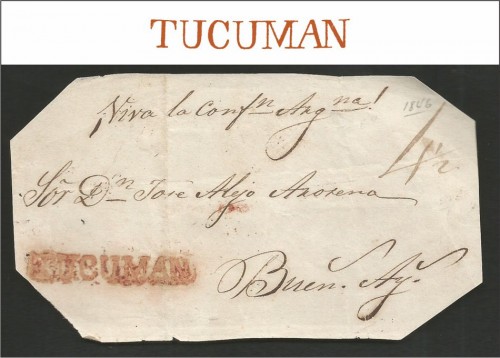 TUCUMAN
¡Viva la Confn Argna!
1846
4½
Sōr Dn José Alejo Arosena
TUCUMAN
Buen. Ay.